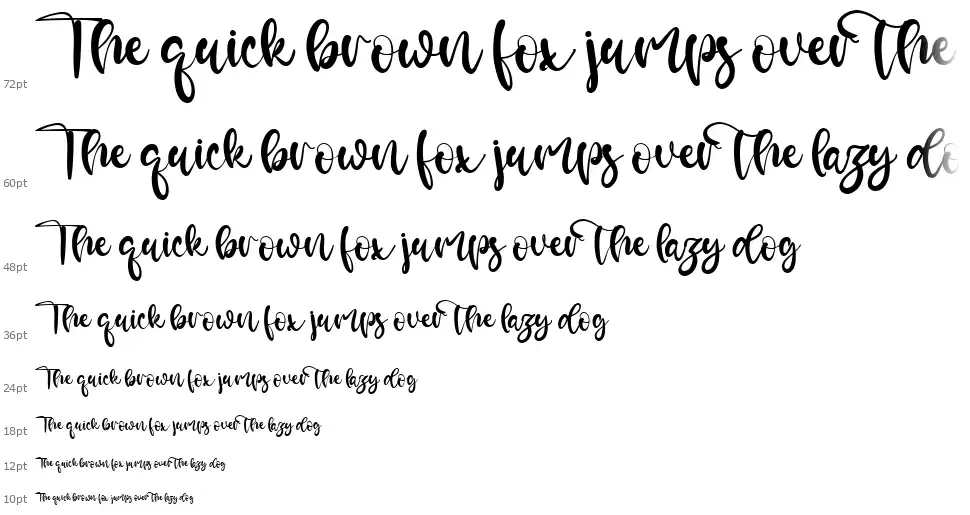 The quick brown fox jumps over the
72pt
The quick brown fox jumps over the lazy do
60pt
The quick brown fox jumps over the lazy dog
48pt
The quick brown fox jumps over the lazy dog
36pt
The quick brown fox jumps over the lazy dog
24pt
The quick brown fox jumps over the lazy dog
18pt
The quick brown fox jumps over the lazy dog
12pt
The quick brown fox jumps over the lazy dog
10pt